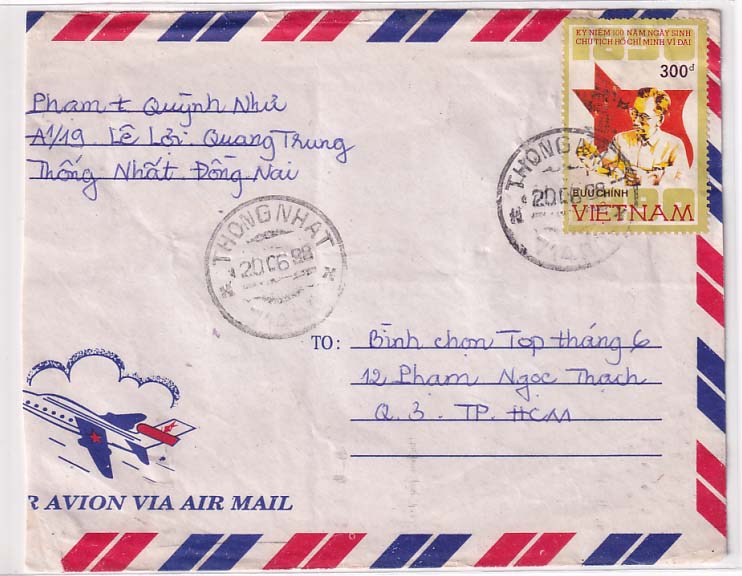 KỶ NIỆM 100 NĂM NGÀY SINH
CHỦ TỊCH HỒ CHÍ MINH VĨ ĐẠI
1890
300đ
BƯU CHÍNH
VIỆT NAM
Quỳnh Như
A1/19 Lê Lợi Quang Trung
Thống Nhất Đồng Nai
THONG NHAT
20.06.98
THONG NHAT
20 06 98
TO: Bình chọn Top tháng 6
12 Phạm Ngọc Thạch
Q. 3. TP. HCM
R AVION VIA AIR MAIL